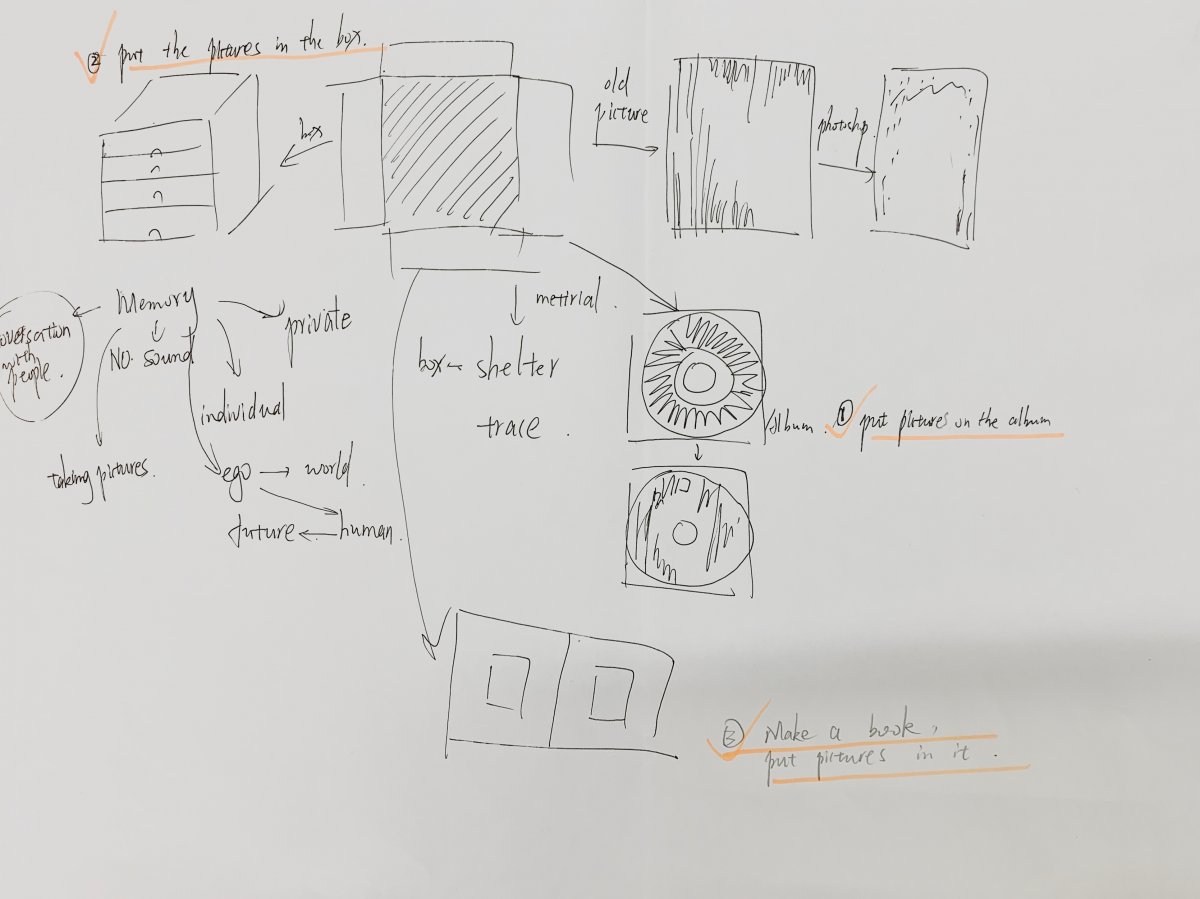 ② put the pictures in the box.
box
old
picture
photoshop
Memory
conversation
with
people.
No. sound
private
individual
taking pictures.
ego → world.
future ← human.
mettrial.
box ← shelter
trace.
Album.
① put pictures on the album
③ Make a book,
put pictures in it.